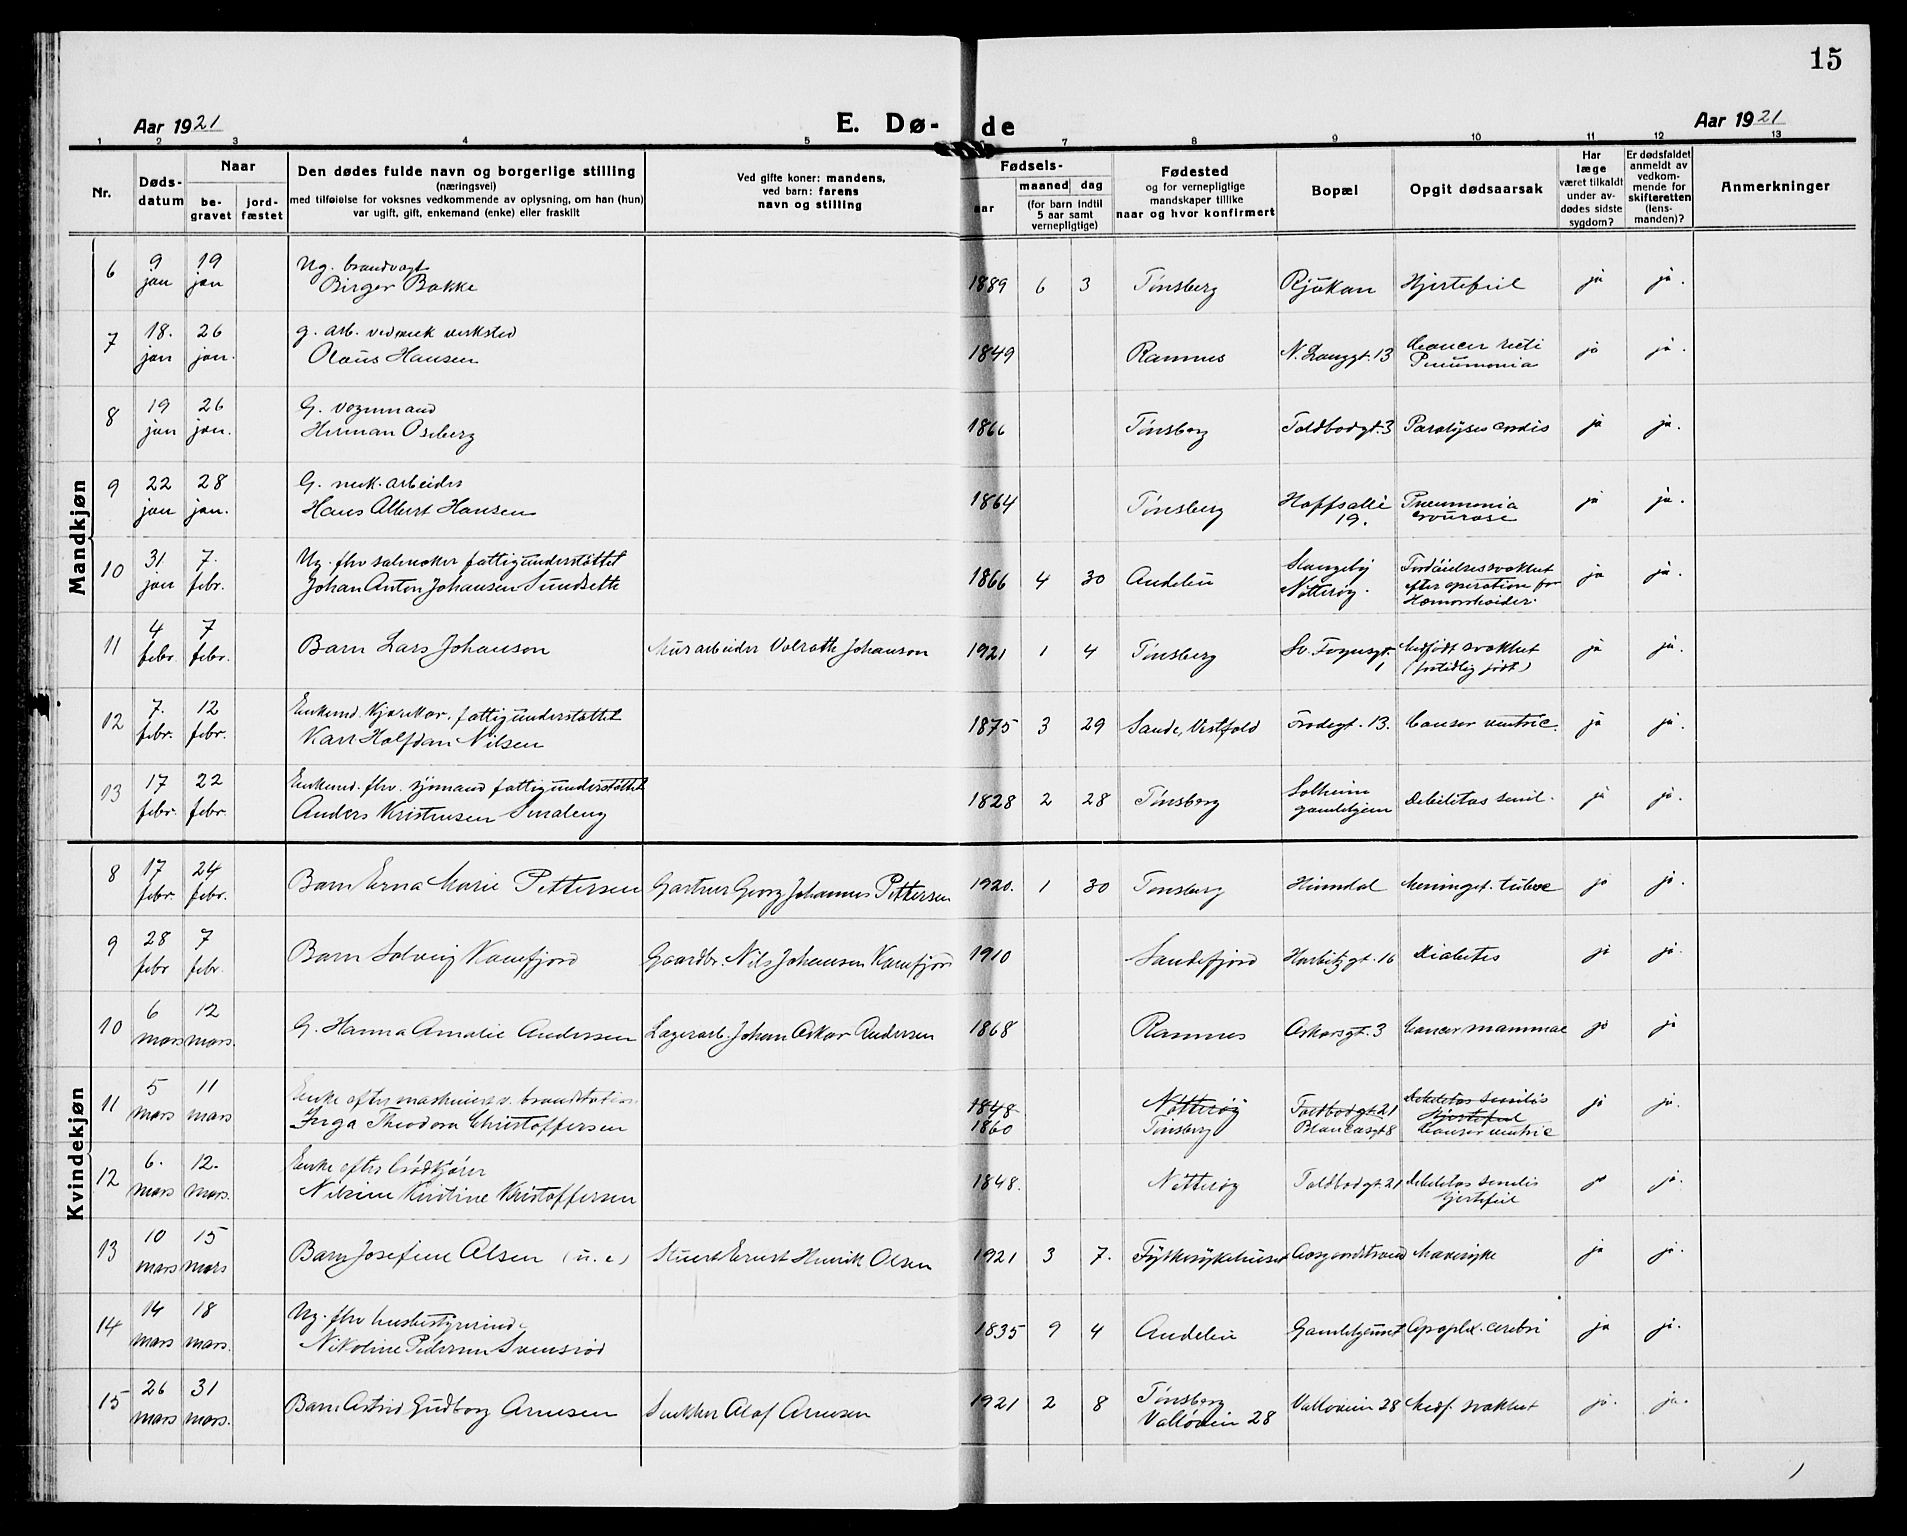 15
Aar 1921
E. Dø-
de
Aar 1921
1 2 3 4 5 7 8 9 10 11 12 13
Nr.
Døds-
datum
Naar
be-
gravet
jord-
fæstet
Den dødes fulde navn og borgerlige stilling
(næringsvei)
med tilføielse for voksnes vedkommende av oplysning, om han (hun)
var ugift, gift, enkemand (enke) eller fraskilt
Ved gifte koner: mandens,
ved barn: farens
navn og stilling
Fødsels-
aar
maaned dag
(for barn indtil
5 aar samt
vernepligtige)
Fødested
og for vernepligtige
mandskaper tillike
naar og hvor konfirmert
Bopæl
Opgit dødsaarsak
Har
læge
været tilkaldt
under av-
dødes sidste
sygdom?
Er dødsfaldet
anmeldt av
vedkom-
mende for
skifteretten
(lens-
manden)?
Anmerkninger
Mandkjøn
6 9 jan 19 jan
Ug. brandvagt
Birger Bakke
1889 6 3 Tønsberg Rjukan Hjertefeil ja ja.
7 18. jan 26 jan.
g. arb. ved mek verksted
Olaus Hansen
1849 Ramnes N. Langgt. 13 Cancer recti
Pneumonia ja ja.
8 19 jan 26 jan.
G. vognmand
Herman Oseberg
1866 Tønsberg Toldbodgt. 3 Paralyses cordis ja ja.
9 22 jan 28 jan.
G. mek. arbeider
Hans Albert Hansen
1864 Tønsberg Hoffsalle
19. Pneumonia
crourose ja ja.
10 31 jan 7. febr.
Ug. fhv salmaker fattigunderstøttet
Johan Anton Johansen Sundseth
1866 4 30 Andebu Stangeby
Nøtterøy. Fordøielsessvakhet
efter operation for
Hæmorrhoider. ja ja.
11 4 febr 7 febr.
Barn Lars Johanson
Murarbeider Volrath Johanson
1921 1 4 Tønsberg Sv. Foynsgt.
1 Medfødt svakhet
(fortidlig født) ja ja.
12 7. febr. 12 febr.
Enkemd. kjørekar. fattigunderstøttet
Karl Halfdan Nilsen
1875 3 29 Sande, Vestfold Frodegt. 13. Canser ventric. ja ja.
13 17 febr. 22 febr.
Enkemd. fhv. sjømand fattigunderstøttet
Anders Kristensen Smaleng
1828 2 28 Tønsberg Solheim
gamlehjem Debilitas senil. ja ja.
Kvindekjøn
8 17 febr. 24 febr.
Barn Erna Marie Pettersen
Gartner Georg Johannes Pettersen
1920. 1 30 Tønsberg Heimdal Meningit. tuberc ja ja.
9 28 febr 7 febr.
Barn Solveig Kamfjord
Gaardbr. Nils Johansen Kamfjord
1910 Sandefjord Harbitzgt. 16 Diabetes ja ja.
10 6 mars 12 mars.
G. Hanna Amalie Anderssen
Lagerarb. Johan Oskar Andersen
1868 Ramnes Oskarsgt. 3 Cancer mammae ja ja
11 5 mars 11 mars
Enke efter maskinist v. brandstation.
Inga Theodora Christoffersen
1848
1860 Nøtterøy
Tønsberg Toldbodgt 21
Blancasgt 8 Debilitas senilis
Hjertefeil
Canser ventric ja ja.
12 6. mars 12. mars.
Enke efter brødkjører
Nilsine Kirstine Kristoffersen
1848. Nøtterøy Toldbodgt. 21 Debilitas senilis
Hjertefeil ja ja.
13 10 mars 15 mars
Barn Josefine Olsen (u. e)
Stuert Ernst Henrik Olsen
1921 3 7. Fylkessykehuset Aasgaardstrand Mavesyke ja ja.
14 14 mars 18 mars.
Ug. fhv husbestyrerinde
Nikoline Pedersen Svensrød
1835 9 4 Andebu Gamlehjemmet Apoplex. cerebri ja ja.
15 26 mars 31 mars.
Barn Astrid Gudborg Arnesen
Snekker Olaf Arnesen
1921 2 8 Tønsberg
Valløvein 28 Valløvein 28 Medf. svakhet ja. ja.